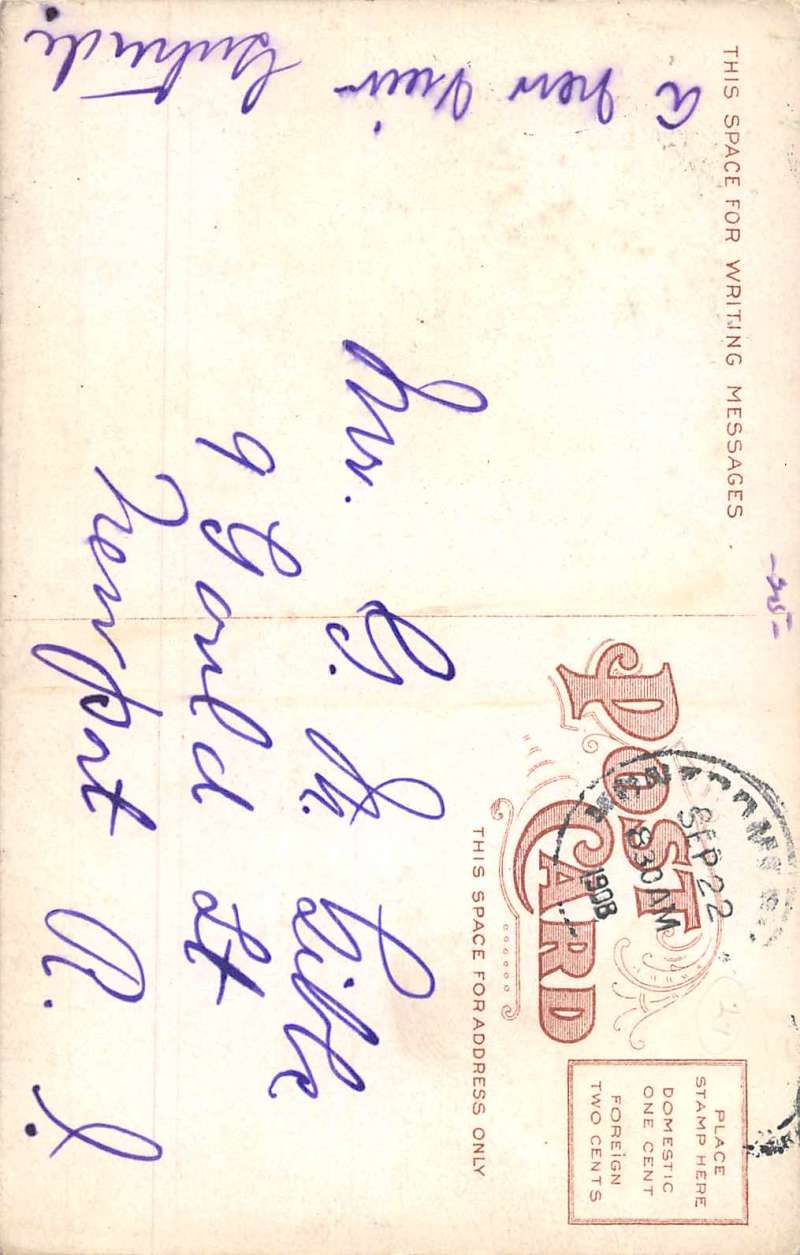 THIS SPACE FOR WRITING MESSAGES
A new view
Gertrude.
POST CARD
THIS SPACE FOR ADDRESS ONLY
PLACE
STAMP HERE
DOMESTIC
ONE CENT
FOREIGN
TWO CENTS
SEP 22
830 AM
1908
Mr. G.
9 Gould St
Newport R. I.